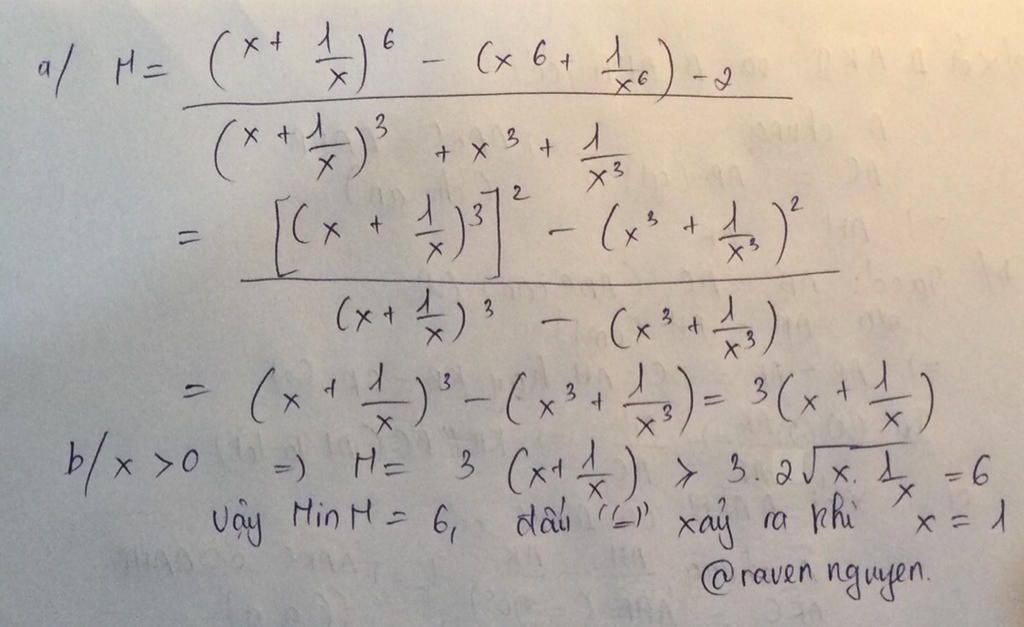 a/ M = ((x + 1/x)^6 - (x^6 + 1/x^6) - 2) / ((x + 1/x)^3 + x^3 + 1/x^3)
= ([(x + 1/x)^3]^2 - (x^3 + 1/x^3)^2) / ((x + 1/x)^3 - (x^3 + 1/x^3))
= (x + 1/x)^3 - (x^3 + 1/x^3) = 3(x + 1/x)
b/ x > 0 => M = 3 (x + 1/x) > 3. 2√(x. 1/x) = 6
Vậy Min M = 6, dấu "=" xảy ra khi x = 1
@raven nguyen.